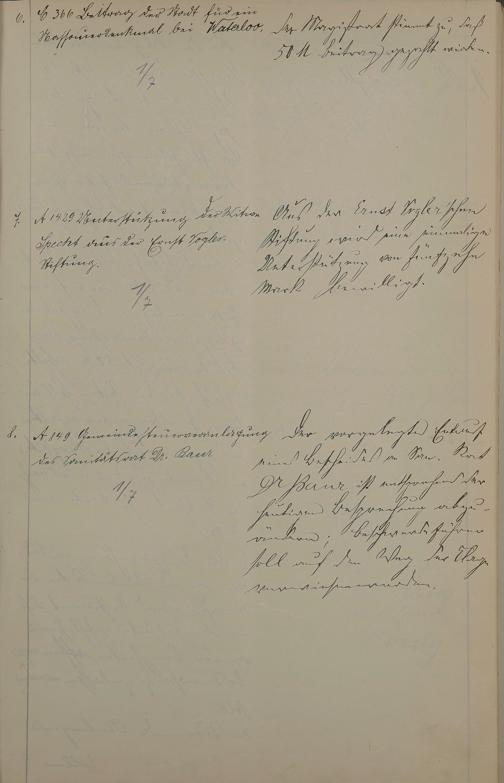 6. C 366 Beitrag der Stadt für ein
Nassauerdenkmal bei Wataloo.
Der Magistrat stimmt zu, daß
50 M beitrag gezahlt werden.
1/7
7. A 1429 Unterstützung der Witwe
Specht aus der Ernst Vogler-
Stiftung.
Aus der Ernst Vogler'schen
Stiftung wird eine einmalige
Unterstützung von fünfzehn
Mark bewilligt.
1/7
8. A 149 Gemeindesteuerveranlagung
des Sanitätsrat Dr. Baur
Der vorgelegte Entwurf
eines Bescheides an San. Rat
Dr Baur ist entsprechend der
heutigen Besprechung abzu-
ändern; Beschwerdeführer
soll auf den Weg der Klage
verwiesen werden.
1/7